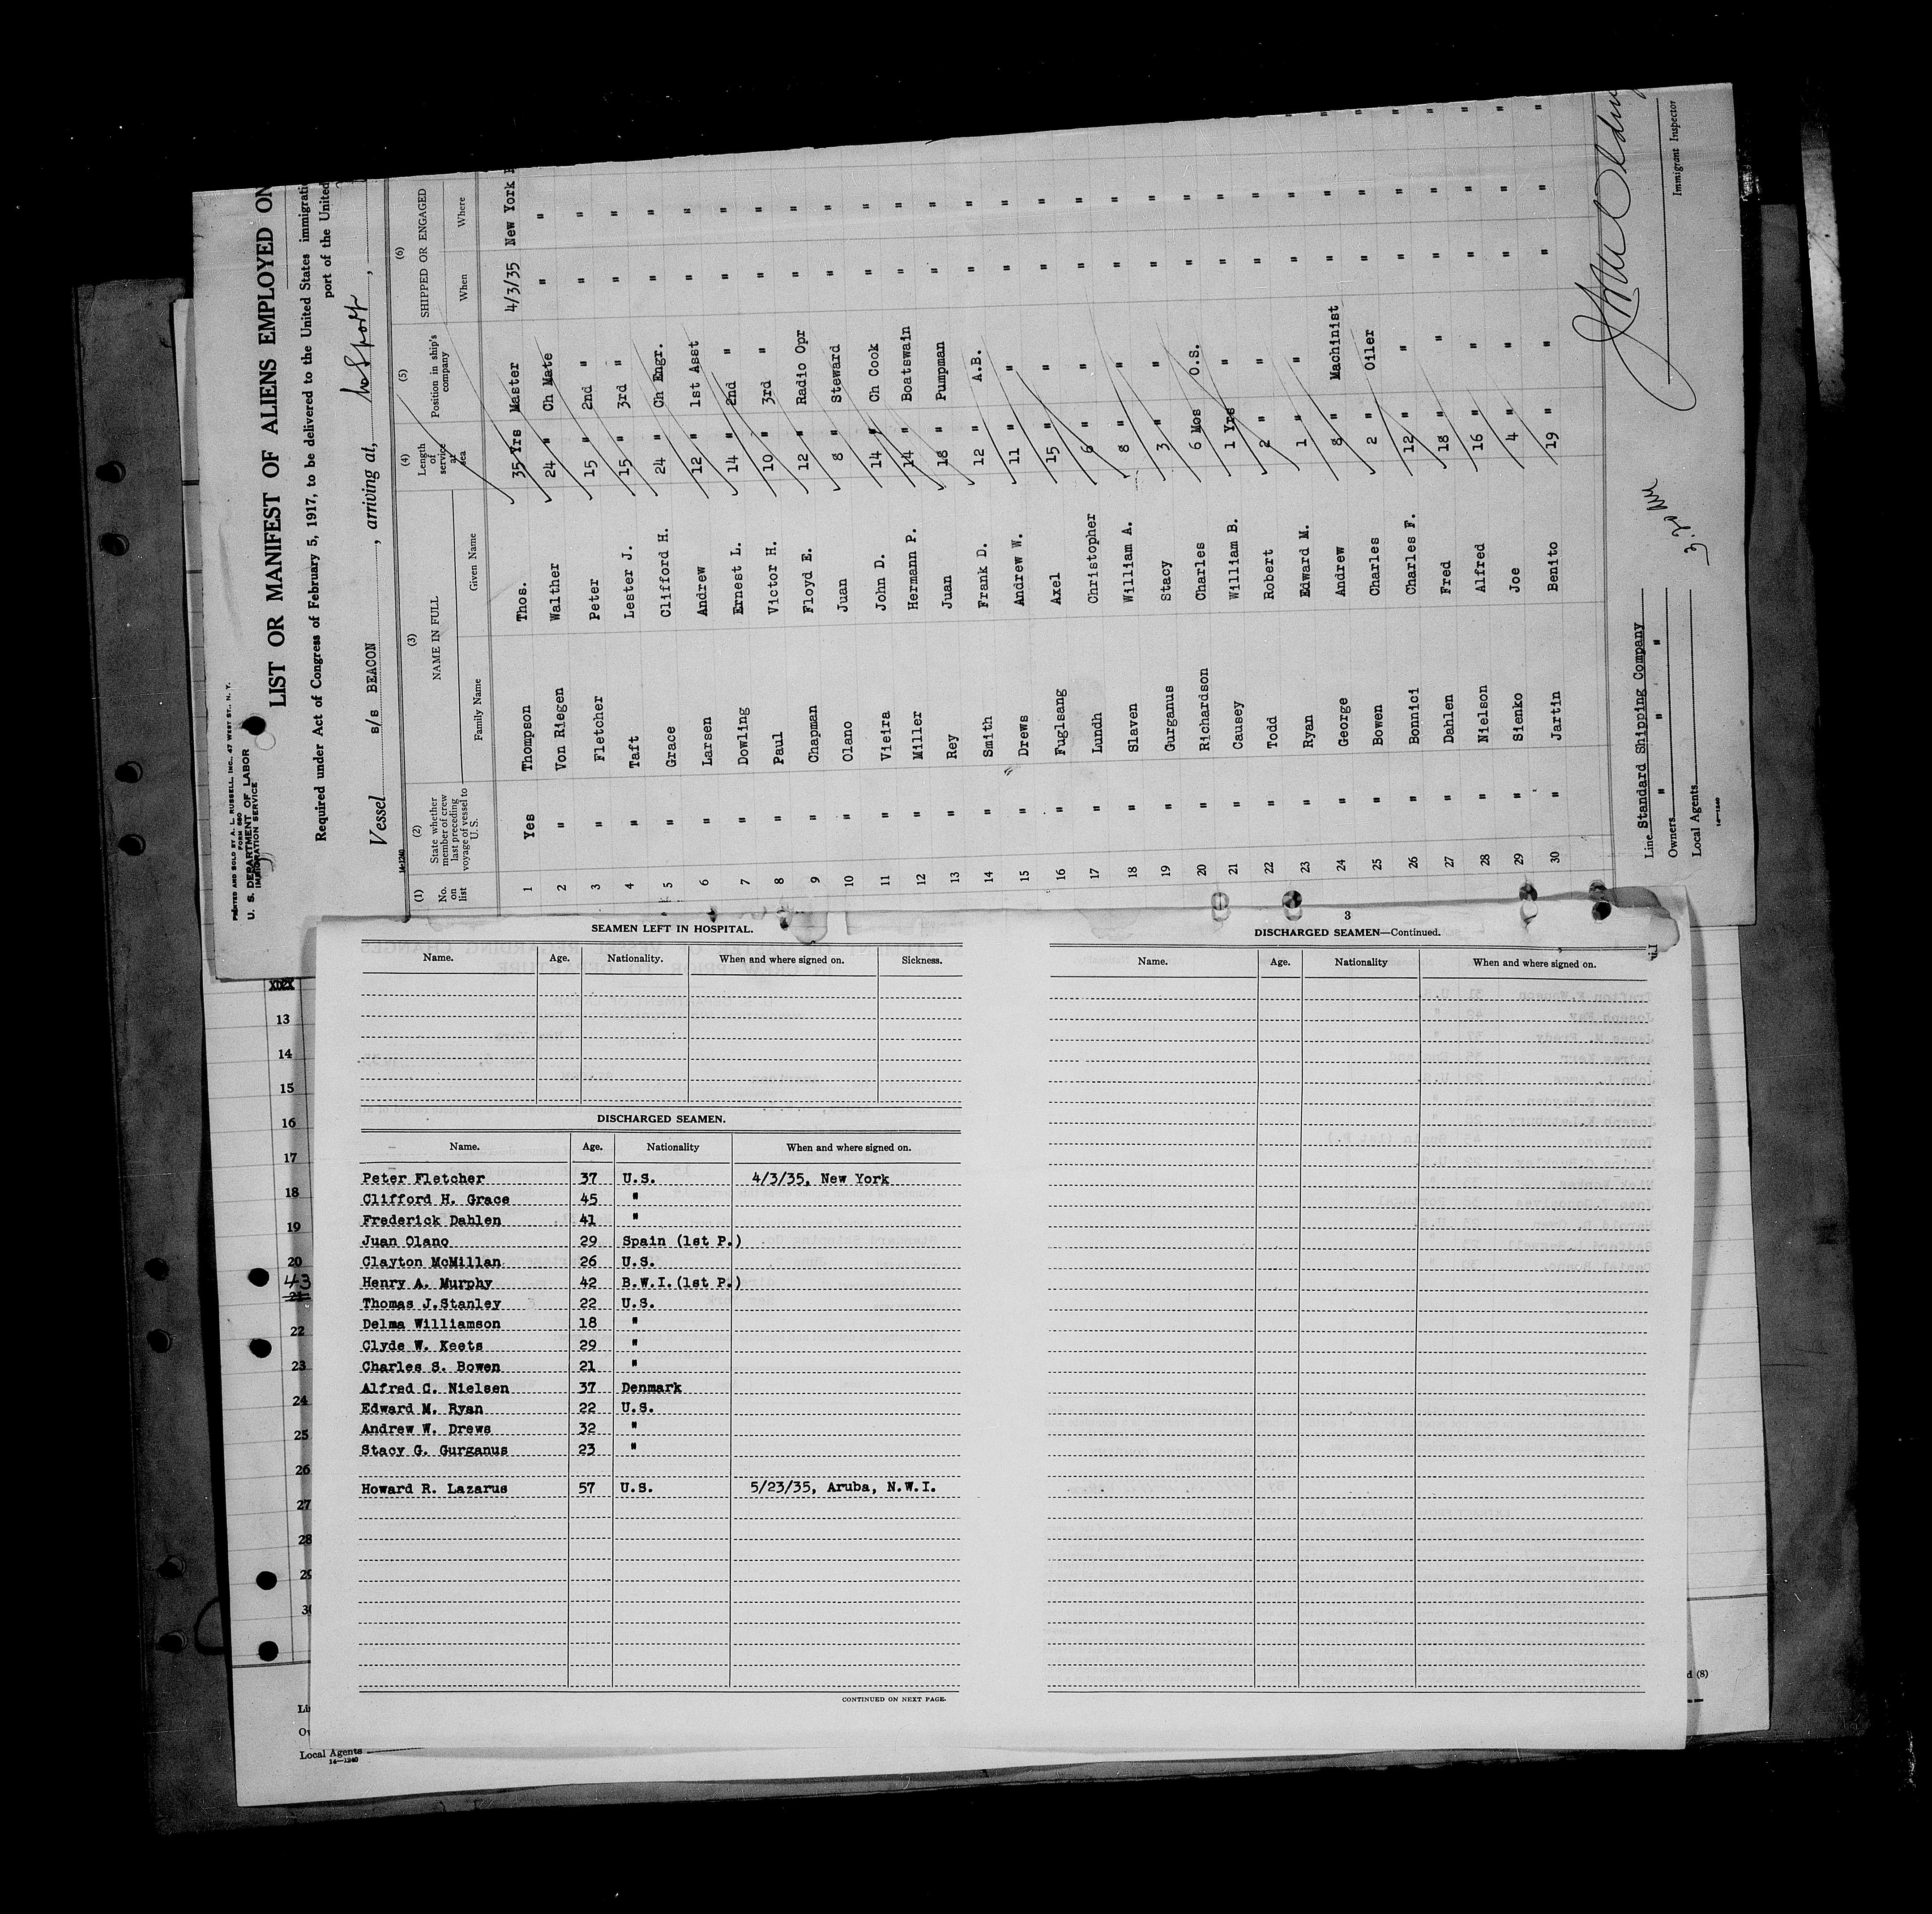 PRINTED AND SOLD BY A. L. RUSSELL, INC., 47 WEST ST., N. Y.
FORM 680
U. S. DEPARTMENT OF LABOR
IMMIGRATION SERVICE
LIST OR MANIFEST OF ALIENS EMPLOYED ON
Required under Act of Congress of February 5, 1917, to be delivered to the United States immigratio
port of the United
Vessel s/s BEACON, arriving at,
14-1240
(1) (2) (3) (4) (5) (6)
No. on list State whether member of crew last preceding voyage of vessel to U.S. NAME IN FULL Length of service at sea Position in ship's company SHIPPED OR ENGAGED
Family Name Given Name When Where
1 Yes Thompson Thos. 35 Yrs Master 4/3/35 New York
2 " Von Riegen Walther 24 " Ch Mate " "
3 " Fletcher Peter 15 " 2nd " " "
4 " Taft Lester J. 15 " 3rd " " "
5 " Grace Clifford H. 24 " Ch Engr. " "
6 " Larsen Andrew 12 " 1st Asst " "
7 " Dowling Ernest L. 14 " 2nd " " "
8 " Paul Victor H. 10 " 3rd " " "
9 " Chapman Floyd E. 12 " Radio Opr " "
10 " Olano Juan 8 " Steward " "
11 " Vieira John D. 14 " Ch Cook " "
12 " Miller Hermann P. 14 " Boatswain " "
13 " Rey Juan 18 " Pumpman " "
14 " Smith Frank D. 12 " A.B. " "
15 " Drews Andrew W. 11 " " " "
16 " Fuglsang Axel 15 " " " "
17 " Lundh Christopher 6 " " " "
18 " Slaven William A. 8 " " " "
19 " Gurganus Stacy 3 " " " "
20 " Richardson Charles 6 Mos O.S. " "
21 " Causey William B. 1 Yrs " " "
22 " Todd Robert 2 " " " "
23 " Ryan Edward M. 1 " " " "
24 " George Andrew 8 " Machinist " "
25 " Bowen Charles 2 " Oiler " "
26 " Bonnici Charles F. 12 " " " "
27 " Dahlen Fred 18 " " " "
28 " Nielson Alfred 16 " " " "
29 " Sienko Joe 4 " " " "
30 " Jartin Benito 19 " " " "
Line Standard Shipping Company
Owners " " "
Local Agents
14-1240
Immigrant Inspector
SEAMEN LEFT IN HOSPITAL.
Name. Age. Nationality. When and where signed on. Sickness.
DISCHARGED SEAMEN.
Name. Age. Nationality When and where signed on.
Peter Fletcher 37 U.S. 4/3/35, New York
Clifford H. Grace 45 "
Frederick Dahlen 41 "
Juan Olano 29 Spain (1st P.)
Clayton McMillan 26 U.S.
Henry A. Murphy 42 B.W.I.(1st P.)
Thomas J.Stanley 22 U.S.
Delma Williamson 18 "
Clyde W. Keets 29 "
Charles S. Bowen 21 "
Alfred C. Nielsen 37 Denmark
Edward M. Ryan 22 U.S.
Andrew W. Drews 32 "
Stacy G. Gurganus 23 "
Howard R. Lazarus 57 U.S. 5/23/35, Aruba, N.W.I.
CONTINUED ON NEXT PAGE.
3
DISCHARGED SEAMEN—Continued.
Name. Age. Nationality When and where signed on.
13
14
15
16
17
18
19
20
43
21
22
23
24
25
26
27
28
29
Local Agents
14-1240
d (8)